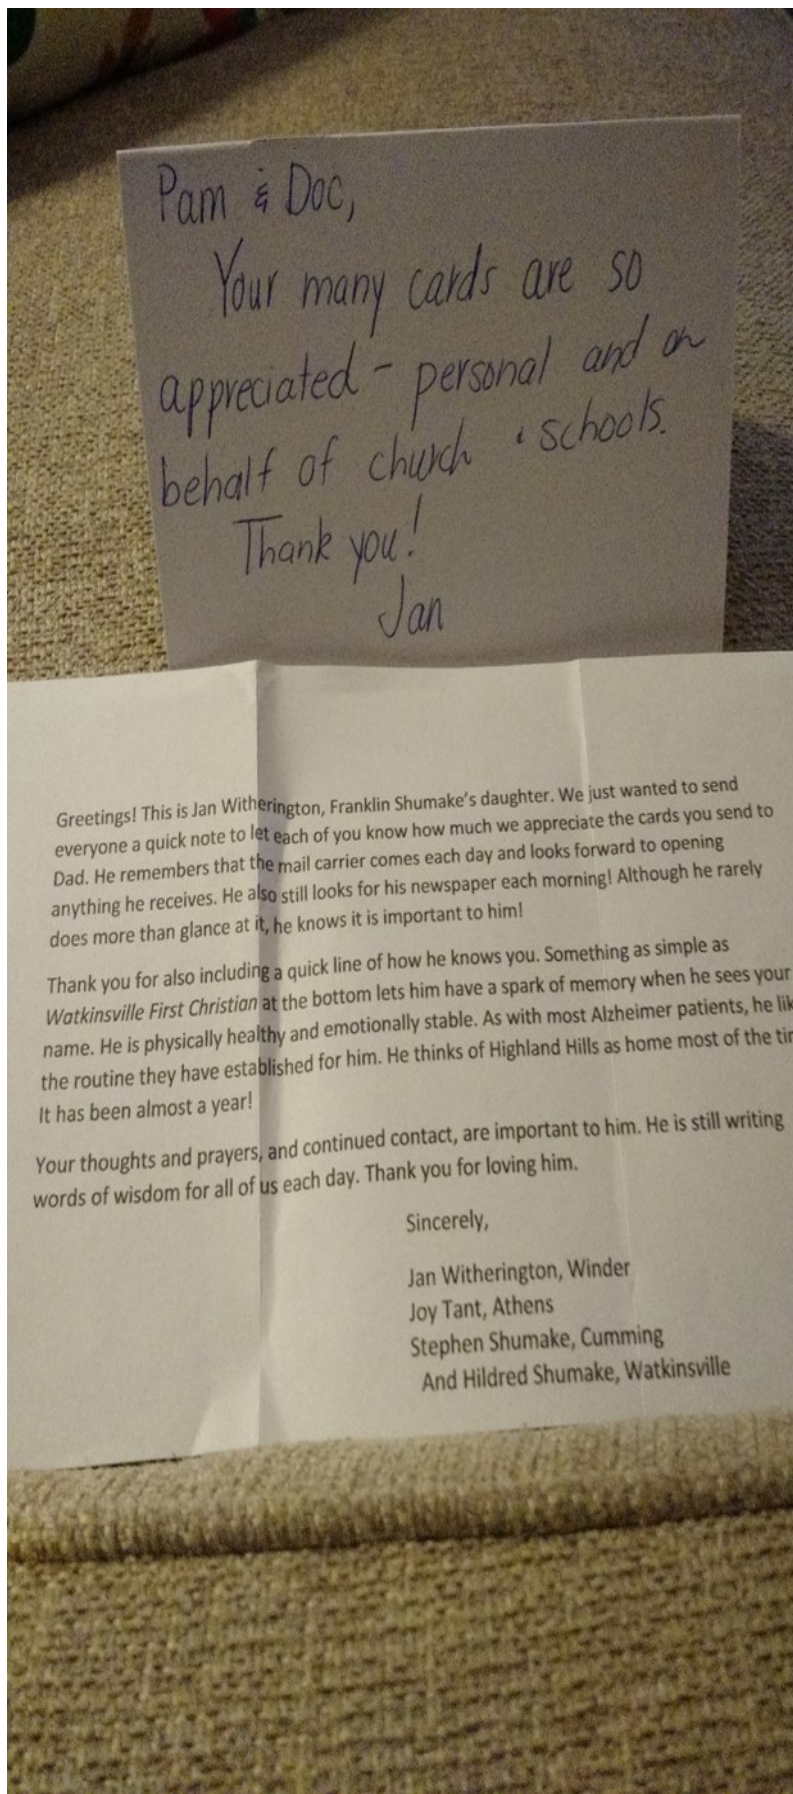 Pam & Doc,
Your many cards are so
appreciated - personal and on
behalf of church & schools.
Thank you!
Jan
Greetings! This is Jan Witherington, Franklin Shumake's daughter. We just wanted to send
everyone a quick note to let each of you know how much we appreciate the cards you send to
Dad. He remembers that the mail carrier comes each day and looks forward to opening
anything he receives. He also still looks for his newspaper each morning! Although he rarely
does more than glance at it, he knows it is important to him!
Thank you for also including a quick line of how he knows you. Something as simple as
Watkinsville First Christian at the bottom lets him have a spark of memory when he sees your
name. He is physically healthy and emotionally stable. As with most Alzheimer patients, he lik
the routine they have established for him. He thinks of Highland Hills as home most of the tim
It has been almost a year!
Your thoughts and prayers, and continued contact, are important to him. He is still writing
words of wisdom for all of us each day. Thank you for loving him.
Sincerely,
Jan Witherington, Winder
Joy Tant, Athens
Stephen Shumake, Cumming
And Hildred Shumake, Watkinsville